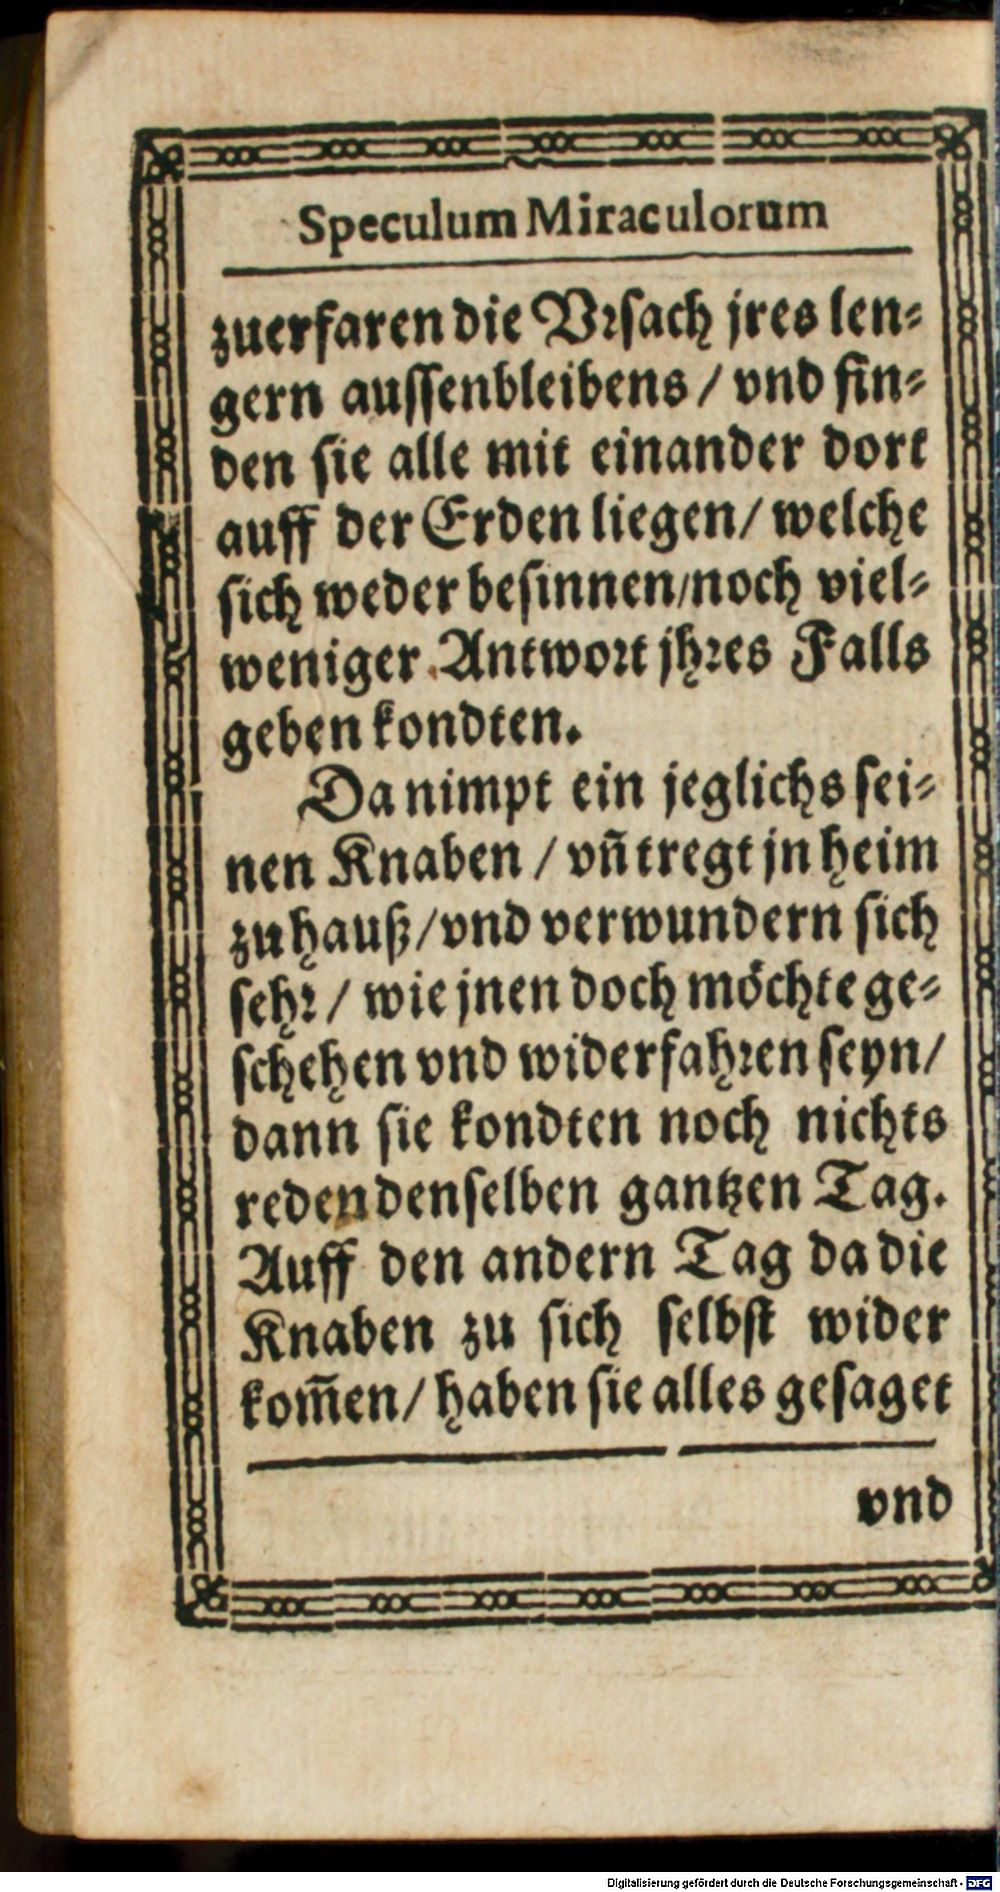 Speculum Miraculorum
zuerfaren die Vrsach jres len⸗
gern aussenbleibens / vnd fin⸗
den sie alle mit einander dort
auff der Erden liegen / welche
sich weder besinnen / noch viel⸗
weniger Antwort jhres Falls
geben kondten.
Da nimpt ein jeglichs sei⸗
nen Knaben / vn̄ tregt jn heim
zu hauß / vnd verwundern sich
sehr / wie jnen doch möchte ge⸗
schehen vnd widerfahren seyn /
dann sie kondten noch nichts
reden denselben gantzen Tag.
Auff den andern Tag da die
Knaben zu sich selbst wider
kom̄en / haben sie alles gesaget
vnd
Digitalisierung gefördert durch die Deutsche Forschungsgemeinschaft - DFG